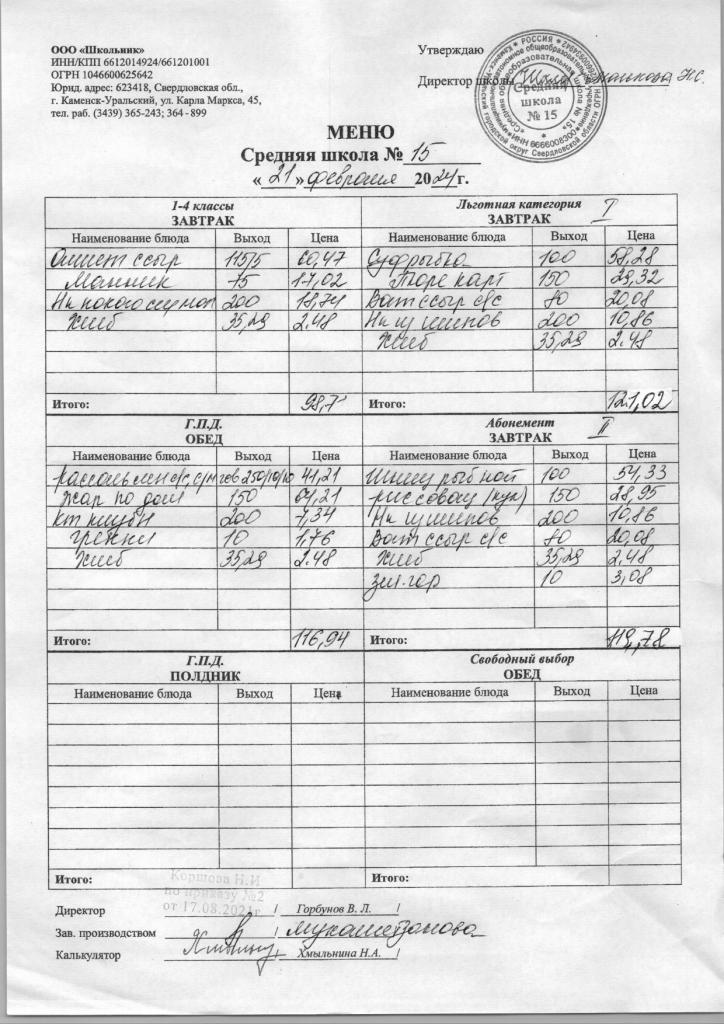 ООО «Школьник»
ИНН/КПП 6612014924/661201001
ОГРН 1046600625642
Юрид. адрес: 623418, Свердловская обл.,
г. Каменск-Уральский, ул. Карла Маркса, 45,
тел. раб. (3439) 365-243; 364 - 899
Утверждаю
Директор школы
Средняя
школа
№ 15
МЕНЮ
Средняя школа № 15
« 21 » февраля 2024г.
1-4 классы
ЗАВТРАК
Льготная категория I
ЗАВТРАК
Наименование блюда Выход Цена Наименование блюда Выход Цена
Омлет с сыр 115/5 60,47 Суф рыбка 100 58,28
Манник 75 17,02 Пюре карт 150 29,32
Нк кокосмол 200 18.74 Бат с сыр с/с 80 20,08
Хлеб 35,29 2.48 Нк ц шипов 200 10,86
Хлеб 35,29 2.48
Итого: 98,71 Итого: 121,02
Г.П.Д.
ОБЕД
Абонемент II
ЗАВТРАК
Наименование блюда Выход Цена Наименование блюда Выход Цена
Рассоль 250/10/10 41,21 рыбной 100 54,33
Жар по дом 150 64,21 рисовая 150 28,95
200 7,34 Нк ц шипов 200 10,86
гренки 10 1,76 Бат с сыр с/с 80 20,08
Хлеб 35,29 2.48 Хлеб 35,29 2,48
зел. гор 10 3,08
Итого: 116,94 Итого: 119,78
Г.П.Д.
ПОЛДНИК
Свободный выбор
ОБЕД
Наименование блюда Выход Цена Наименование блюда Выход Цена
Итого: Итого:
Коршова Н.И
по приказу №2
от 17.08.2021г.
Директор / Горбунов В. Л. /
Зав. производством / /
Калькулятор / Хмыльнина Н.А. /